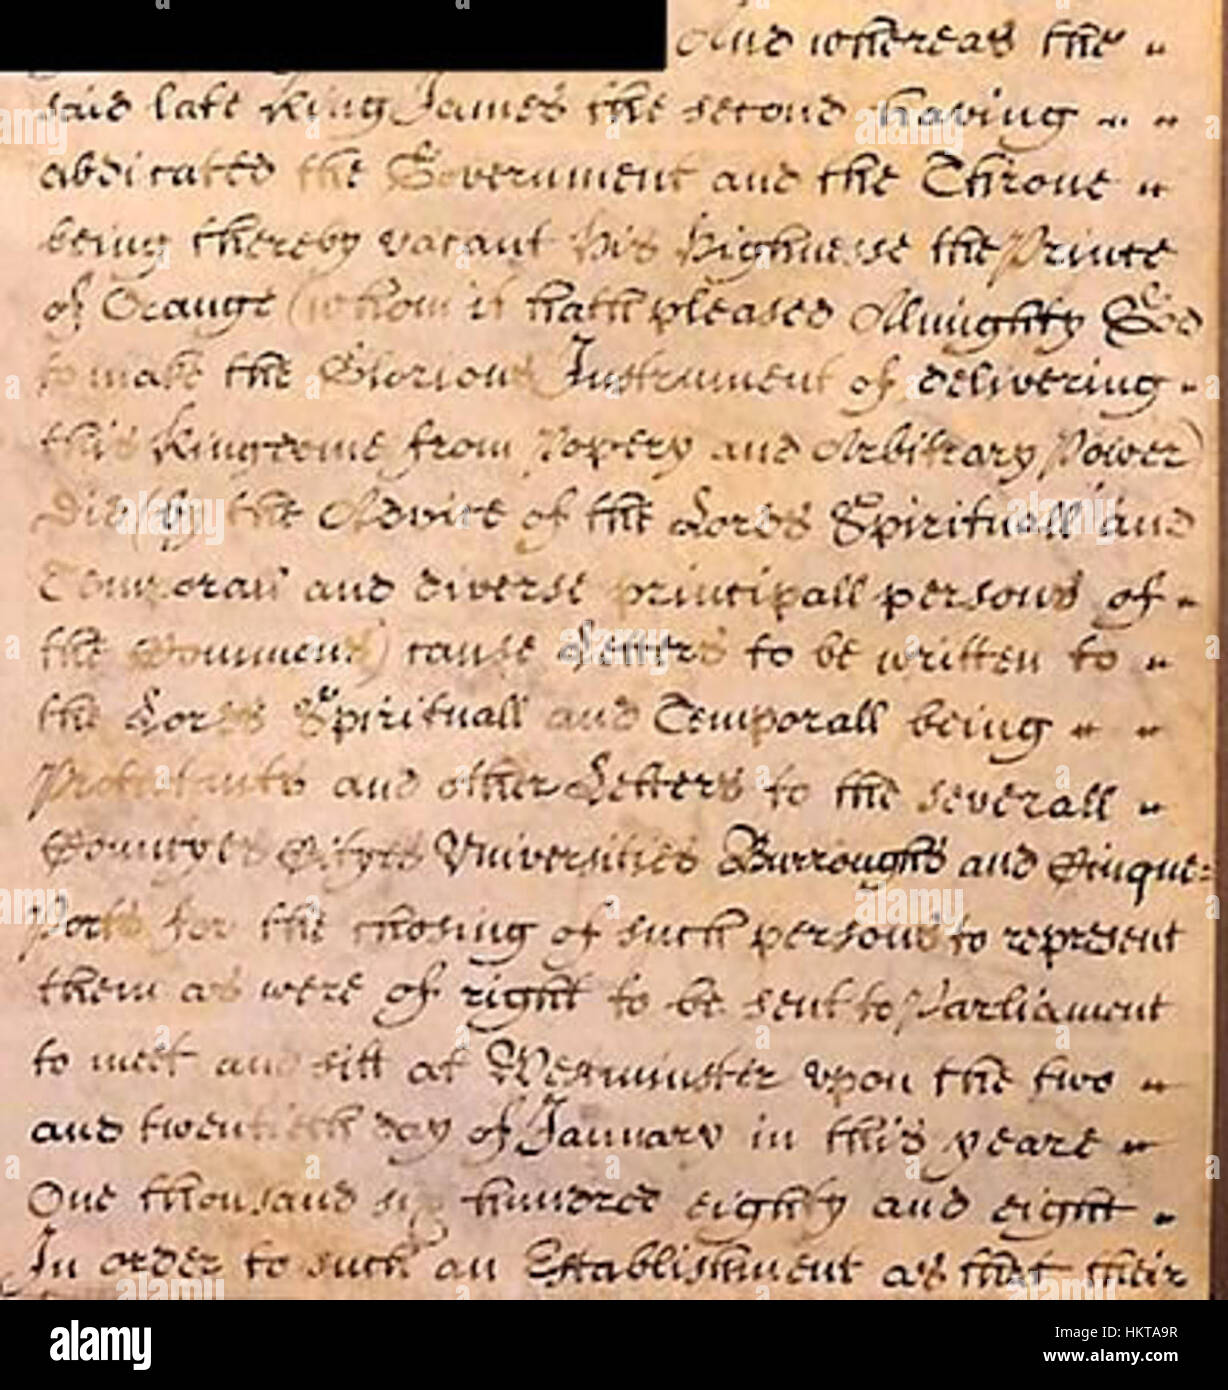 And whereas the
said late King James the second having
abdicated the Government and the Throne
being thereby vacant his Highnesse the Prince
of Orange (whom it hath pleased Almighty God
to make the Glorious Instrument of delivering
this Kingdome from Popery and Arbitrary Power)
Did (by the Advice of the Lords Spirituall and
Temporall and diverse principall persons of
the Commons) cause Letters to be written to
the Lords Spirituall and Temporall being
Protestants and other Letters to the severall
Countyes Cityes Universities Burroughs and Cinque=
Ports for the chosing of such persons to represent
them as were of right to be sent to Parliament
to meet and sitt at Westminster upon the two
and twentieth day of January in this yeare
One thousand six hundred eighty and eight
In order to such an Establishment as that their
alamy
Image ID: HKTA9R
www.alamy.com